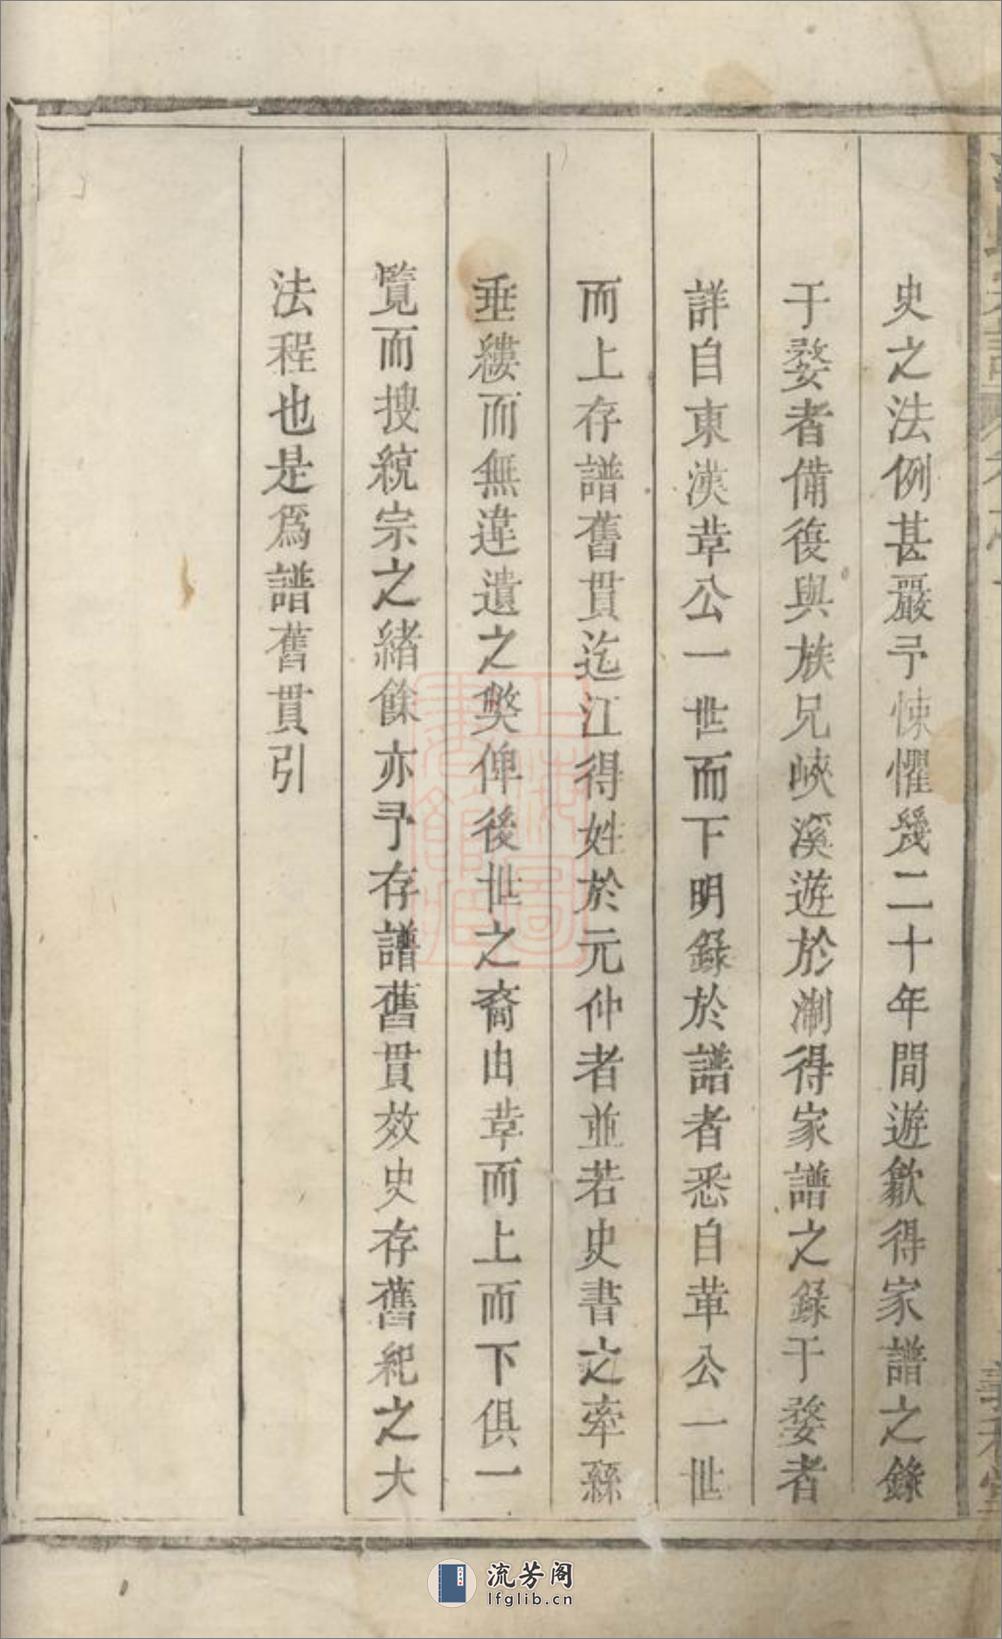 史之法例甚嚴予悚懼幾二十年間遊歙得家譜之錄
于婺者備復與族兄峽溪遊於淛得家譜之錄于婺者
詳自東漢葦公一世而下明錄於譜者悉自葦公一世
而上存譜舊貫迄江得姓於元仲者並若史書之牽繇
垂縷而無違遺之獘俾後世之裔由葦而上而下俱一
覽而搜統宗之緒餘亦予存譜舊貫效史存舊紀之大
法程也是爲譜舊貫引
義和堂
流芳阁
lfglib.cn